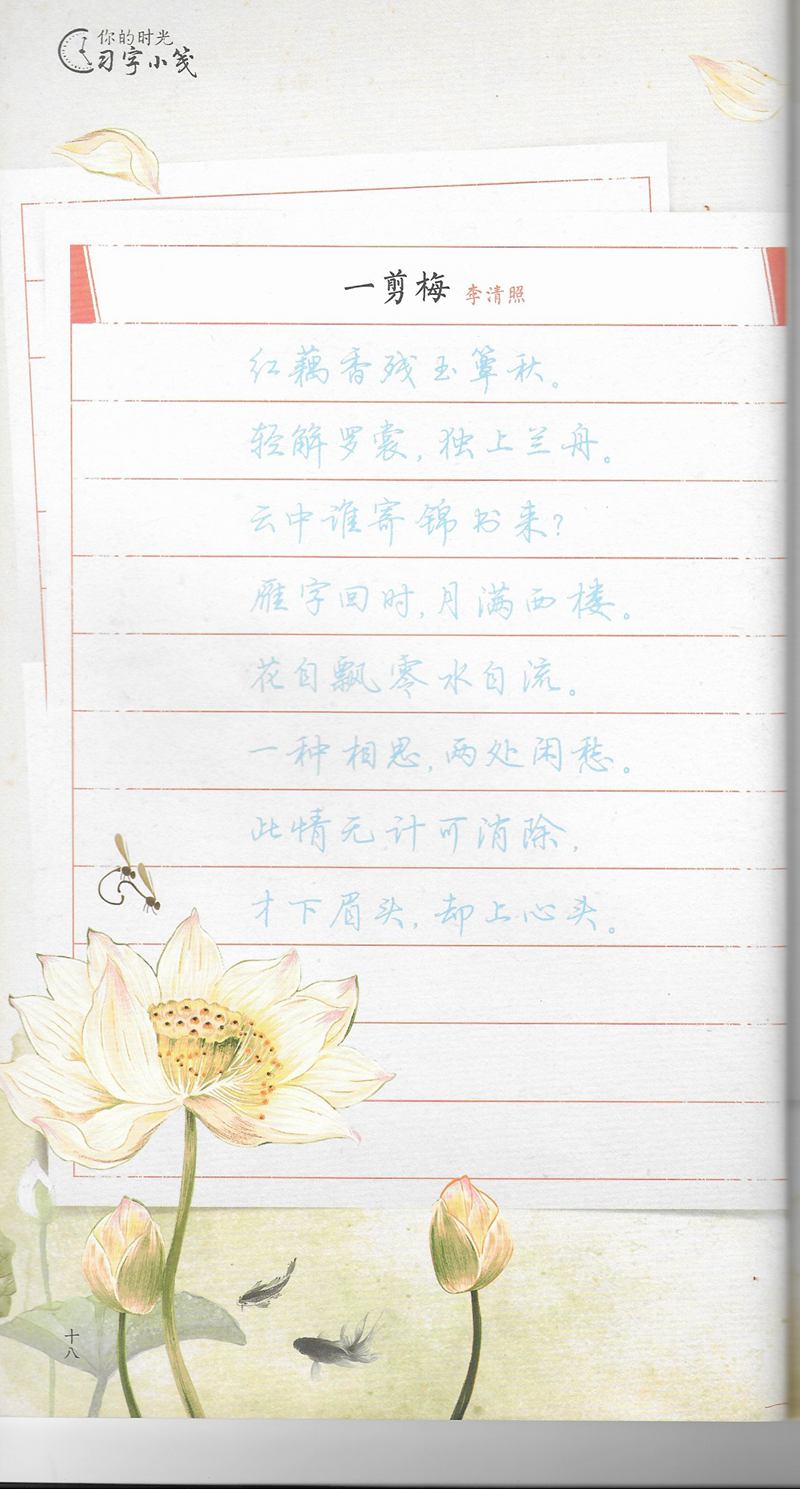 你的时光
习字小笺
一剪梅 李清照
红藕香残玉簟秋。
轻解罗裳,独上兰舟。
云中谁寄锦书来?
雁字回时,月满西楼。
花自飘零水自流。
一种相思,两处闲愁。
此情无计可消除,
才下眉头,却上心头。
十八